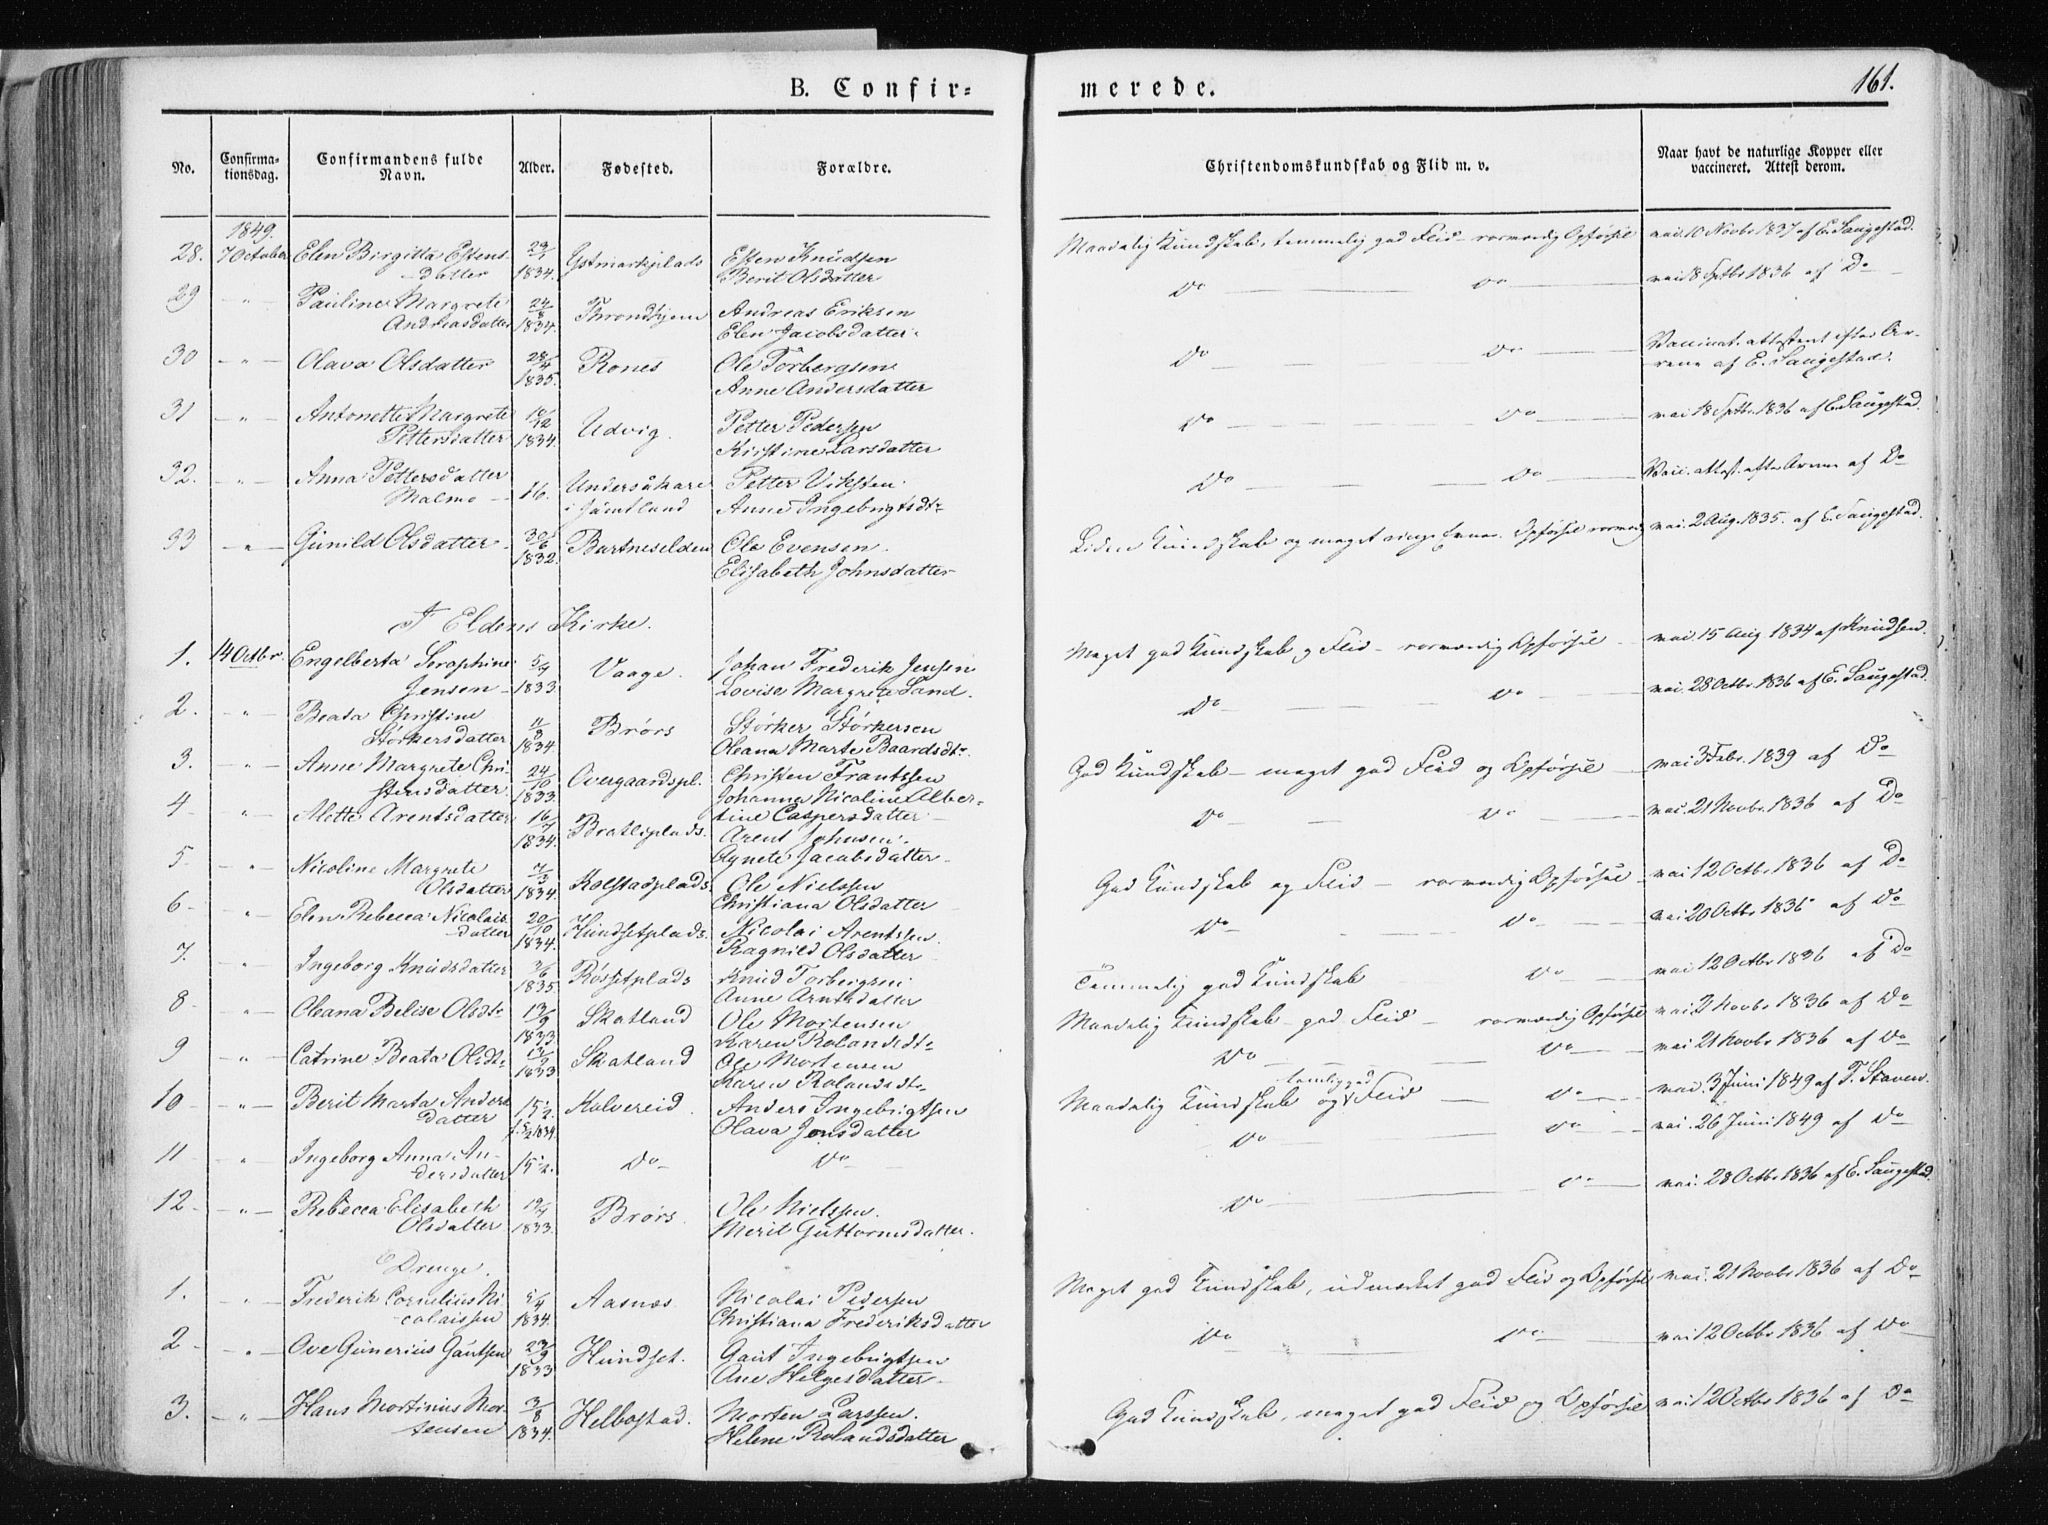 B. Confir=
merede.
161.
No.
Confirma-
tionsdag.
Confirmandens fulde
Navn.
Alder.
Fødested.
Forældre.
Christendomskundskab og Flid m. v.
Naar havt de naturlige Kopper eller
vaccineret. Attest derom.
1849.
28. 7 October Elen Birgitta Estens- 29/1 Ystmarkplads Esten Knudsen Maadelig Kundskab, temmelig god Flid - ærværdig Opførsel vac. 10 Novbr 1837 af E. Saugestad.
datter 1834. Berit Olsdatter
29 - " - Pauline Margrete 24/8 Throndhjem Andreas Eriksen Do Do vac. 18 Septbr 1836 af Do
Andreasdatter 1834. Elen Jacobsdatter.
30 - " - Olava Olsdatter 28/4 Rones Ole Torbergsen Do Do Vaccinat. attesteret efter Ar-
1835. Anne Andersdatter rene af E. Saugestad.
31 - " - Antonette Margrete 10/12 Udvig. Petter Pedersen Do Do vac. 18 Septbr. 1836 af E. Saugestad.
Pettersdatter 1834. Kirstine Larsdatter
32. - " - Anna Pettersdatter 16. Undersåkere Petter Viksten Do Do Vacc. attest. efter Arrene af Do
Malmo i Jämtland Anne Ingebrigtsdtr
33 - " - Gunild Olsdatter 30/6 Bartneselden Ole Evensen. Liden Kundskab og meget ringe Evner. Opførsel vac. 2 Aug. 1835. af E. Saugestad.
1832. Elisabeth Johnsdatter
I Eldens Kirke.
1. 14 Octbr. Engelberta Seraphine 5/4 Vaage. Johan Frederik Jensen Meget god Kundskab og Flid - Opførsel vac. 15 Aug 1834 af Knudsen.
Jensen 1833. Lovise Margrete Sand.
2. - " - Beata Christine 11/3 Brørs Størker Størkersen Do Do vac. 28 Octbr. 1836 af E. Saugestad.
Størkersdatter 1834 Oleana Marte Baardsdtr
3. - " - Anne Margrete Chri- 24/10 Overgaardspl. Christen Frantssen God Kundskab - meget god Flid og Opførsel vac. 3 Febr. 1839 af Do
stensdatter 1833. Johanna Nicoline Alber-
tine Caspersdatter
4 - " - Mette Arentsdatter 16/7 Bratliplads. Arent Johnsen. Do Do vac. 21 Novbr. 1836 af Do
1834. Agnete Jacobsdatter
5. - " - Nicoline Margrete 7/3 Kolstadplads Ole Nielssen God Kundskab og Flid - Opførsel vac. 12 Octbr. 1836 af Do
Olsdatter 1834. Christiana Olsdatter
6 - " - Elen Rebecca Nicolais- 20/10 Hundsetplads Nicolai Arentssen. Do Do vac. 20 Octbr 1836 af Do
datter 1834. Ragnild Olsdatter
7. - " - Ingeborg Knudsdatter 3/6 Røssetplads Knud Torbergsen Temmelig god Kundskab Do vac. 12 Octbr 1836 af Do
1835. Anne Arntsdatter
8 - " - Oleana Belise Olsdtr 13/9 Skatland Ole Mortensen Maadelig Kundskab - god Flid - Opførsel vac. 2 Novbr 1836 af Do
1833 Karen Rolandsdtr
9 - " - Catrine Beata Olsdtr 13/9 Skatland Ole Mortensen Do Do vac. 21 Novbr 1836 af Do
1833 Karen Rolandsdtr
10 - " - Berit Marta Anders 15½. Kolvereid. Anders Ingebrigtsen Maadelig Kundskab og temlig god Flid Do vac. 3 Juni 1849 af T. Staven.
datter f. 5/2 1834. Olava Jonsdatter
11 - " - Ingeborg Anna An- 15½. Do Do Do Do vac. 26 Juni 1849 af Do
dersdatter
12 - " - Rebecca Elisabeth 19/4 Brørs. Ole Nielssen. Do Do vac. 28 Octbr 1836 af E. Saugestad.
Olsdatter 1833. Merit Guttormsdatter.
Drenge.
1. - " - Frederik Cornelius Ni- 5/4 Aasnæs. Nicolai Pedersen Meget god Kundskab, udmærket god Flid og Opførsel vac. 21 Novbr 1836 af Do
colaissen 1834. Christiana Frederiksdatter
2 - " - Ove Gunerius Gautsen 23/9 Hundset. Gaut Ingebrigtsen Do Do vac. 12 Octbr 1836 af Do
1833 Ane Helgesdatter
3. - " - Hans Mortinius Mor- 3/8 Helbostad. Morten Larssen. God Kundskab, meget god Flid og Opførsel vac. 12 Octbr 1836 af Do
tensen 1834. Helene Rolandsdatter